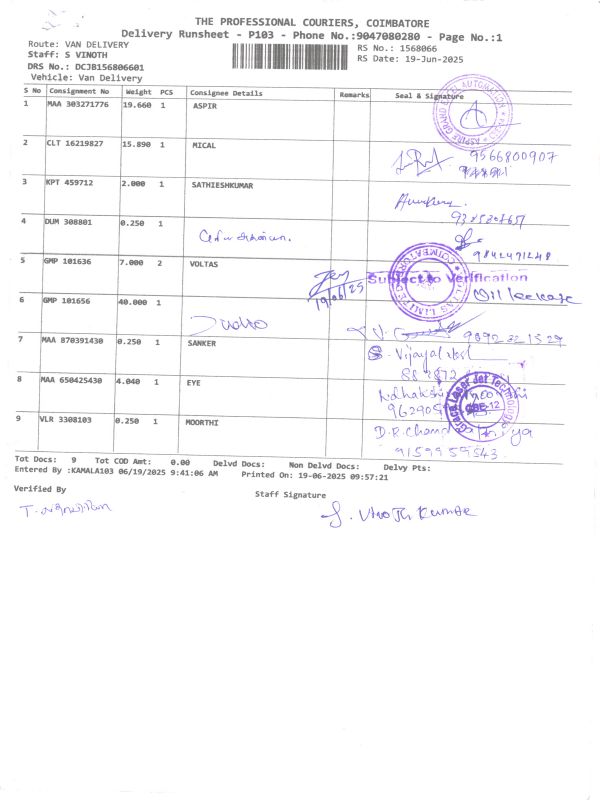 THE PROFESSIONAL COURIERS, COIMBATORE
Delivery Runsheet - P103 - Phone No.:9047080280 - Page No.:1
Route: VAN DELIVERY
RS No.: 1568066
Staff: S VINOTH
RS Date: 19-Jun-2025
DRS No.: DCJB156806601
Vehicle: Van Delivery
S No Consignment No Weight PCS Consignee Details Remarks Seal & Signature
1 MAA 303271776 19.660 1 ASPIR
ASPIRE GRAND EXCEL AUTOMATION
2 CLT 16219827 15.890 1 MICAL
9566800907
3 KPT 459712 2.000 1 SATHIESHKUMAR
4 DUM 308801 0.250 1
9842471248
5 GMP 101636 7.000 2 VOLTAS
Subject to Verification
COIMBATORE
19/06/25
6 GMP 101656 40.000 1
7 MAA 870391430 0.250 1 SANKER
8 MAA 650425430 4.040 1 EYE
Grace Laser Jet Technology
CBE-12
9 VLR 3308103 0.250 1 MOORTHI
9159959543
Tot Docs: 9 Tot COD Amt: 0.00 Delvd Docs: Non Delvd Docs: Delvy Pts:
Entered By :KAMALA103 06/19/2025 9:41:06 AM Printed On: 19-06-2025 09:57:21
Verified By
Staff Signature
S. Vinoth Kumar